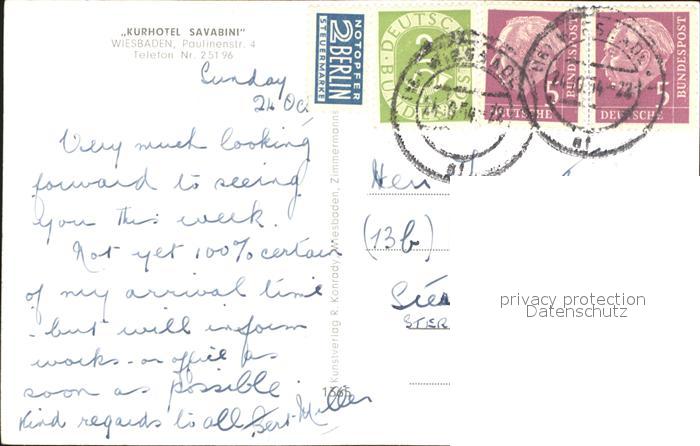 „KURHOTEL SAVABINI"
WIESBADEN, Paulinenstr. 4
Telefon Nr. 25196
Sunday
24 Oct
Very much looking
forward to seeing
you this week.
Not yet 100% certain
of my arrival time
- but will inform
works - or office as
soon as possible.
Kind regards to all Bert Miller
Kunstverlag R. Konrady, Wiesbaden, Zimmermanns
1565
NOTOPFER
2 BERLIN
STEUERMARKE
DEUTSCHE BUNDESPOST
2
5
DEUTSCHE
BUNDESPOST
5
DEUTSCHE
BUNDESPOST
WIESBADEN
Herr
(13b)
STER
privacy protection
Datenschutz